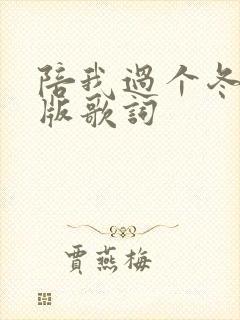 陪我過个冬
版歌詞
賈燕梅